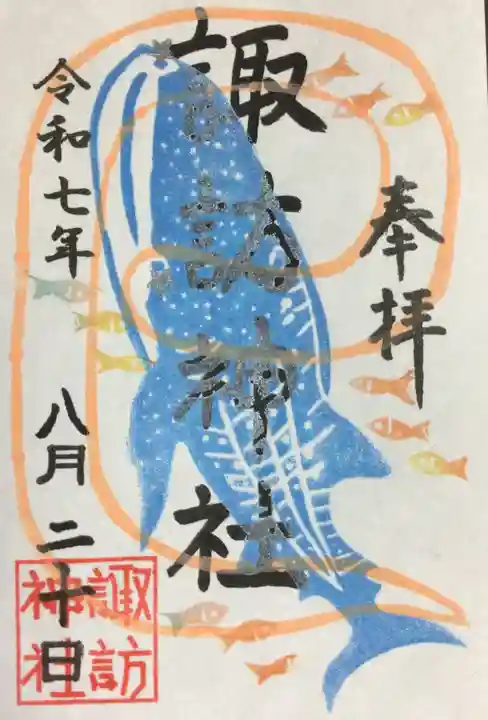 奉拝
諏訪神社
令和七年 八月二十日
諏訪
神社